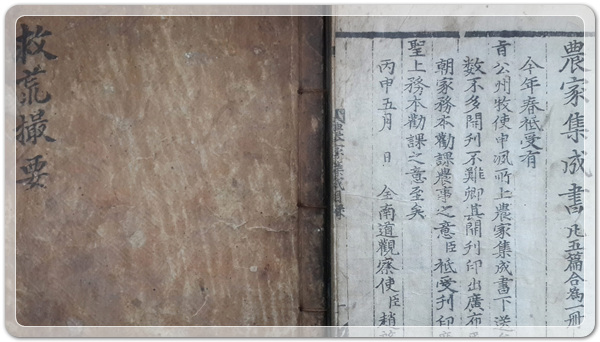 農家集成書 凡五篇合為一册
今年春祗受有
旨公州牧使申洬所上農家集成書下送
数不多開刊不難卿其開刊印出廣布
朝家務本勸課農事之意臣祗受刊印
聖上務本勸課之意至矣
丙申五月 日 全南道觀察使臣趙
救荒撮要